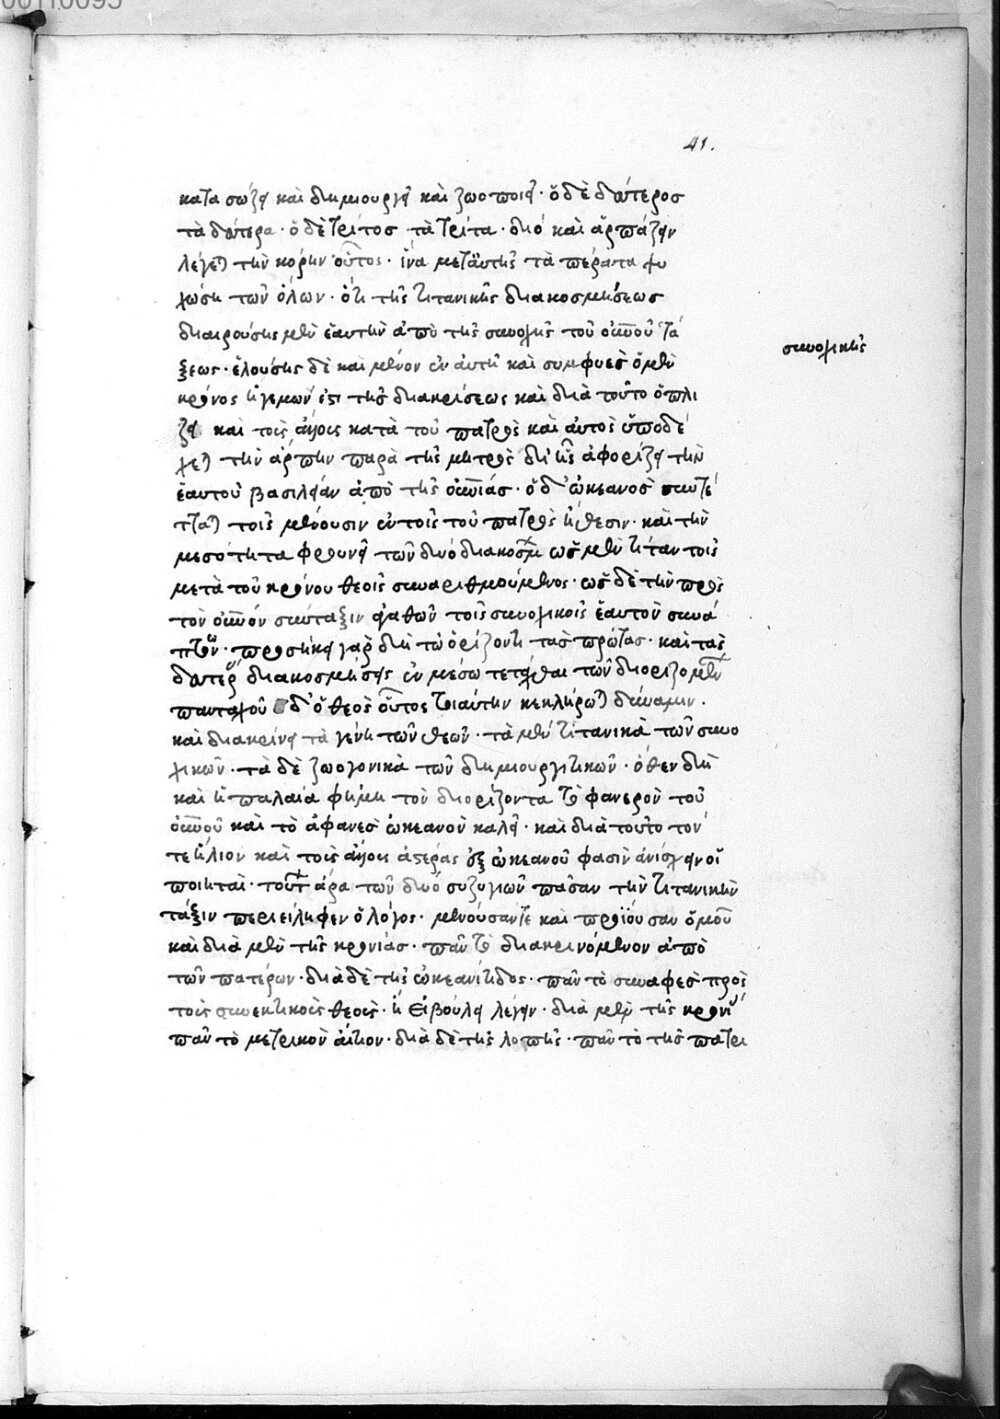 00110095
41.
κατα σώζει καὶ δημιουργεῖ καὶ ζωοποιεῖ· ὁ δὲ δεύτερος
τὰ δεύτερα· ὁ δὲ τρίτος τὰ τρίτα· διό καὶ ἁρπάζειν
λέγεται τὴν κόρην οὗτος· ἵνα μετ' αὐτῆς τὰ πέρατα ψυ
χώση τῶν ὅλων· ὅτι τῆς τιτανικῆς διακοσμήσεως
διαιρούσης μὲν ἑαυτὴν ἀπὸ τῆς συνοχῆς τοῦ οὐρανοῦ τά
συνοχικῆς
ξεως· ἐχούσης δὲ καὶ μένον ἐν αὐτῆ καὶ συμφυὲς ὁ μὲν
κρόνος ἡγεμών ἐστι τῆς διακρίσεως καὶ διὰ τοῦτο ὁπλί
ζει καὶ τοὺς ἄλλους κατὰ τοῦ πατρὸς καὶ αὐτὸς ὑποδέ
χεται τὴν ἅρπην παρὰ τῆς μητρὸς δι' ἧς ἀφορίζει τὴν
ἑαυτοῦ βασιλείαν ἀπὸ τῆς οὐρανίας· ὁ δ' ὠκεανὸς συντέ
τακται τοῖς μένουσιν ἐν τοῖς τοῦ πατρὸς ἤθεσιν· καὶ τὴν
μεσότητα φρουρεῖ τῶν δυό διακοσμ ὡς μὲν τιτὰν τοῖς
μετὰ τοῦ κρόνου θεοῖς συναριθμούμενος· ὡς δὲ τὴν πρὸς
τὸν οὐρανόν σύνταξιν ἀγαθῶν τοῖς συνοχικοῖς ἑαυτὸν συνά
πτων· προσήκει γὰρ δὴ τῶ ὁρίζοντι τὰς πρώτας· καὶ τὰς
δευτέρας διακοσμήσεις ἐν μέσω τετάχθαι τῶν διοριζομένων
πανταχοῦ δ' ὁ θεὸς οὗτος τοιαύτην κεκλήρωται δύναμιν·
καὶ διακρίνει τὰ γένη τῶν θεῶν· τὰ μὲν τιτανικὰ τῶν συνο
χικῶν· τὰ δὲ ζωογονικὰ τῶν δημιουργικῶν· ὅθεν δὴ
καὶ ἡ παλαιὰ φήμη τὸν διορίζοντα τὸ φανερὸν τοῦ
οὐρανοῦ καὶ τὸ ἀφανὲς ὠκεανὸν καλεῖ· καὶ διὰ τοῦτο τόν
τε ἥλιον καὶ τοὺς ἄλλους ἀστέρας ἐξ ὠκεανοῦ φασὶν ἀνίσχειν οἱ
ποιηταί· τούτων ἄρα τῶν δυό συζυγιῶν πᾶσαν τὴν τιτανικὴν
τάξιν περιείληφεν ὁ λόγος· μένουσάν τε καὶ προϊοῦσαν ὁμοῦ
καὶ διὰ μὲν τῆς κρονίας· πᾶν τὸ διακρινόμενον ἀπὸ
τῶν πατέρων· διὰ δὲ τῆς ὠκεανίτιδος· πᾶν τὸ συναφὲς πρὸς
τοὺς συνεκτικοὺς θεοὺς· ἢ εἰ βούλει λέγειν· διὰ μὲν τῆς κρονί
πᾶν τὸ μητρικὸν αἴτιον· διὰ δὲ τῆς λοιπῆς· πᾶν τὸ τῆς πατρι